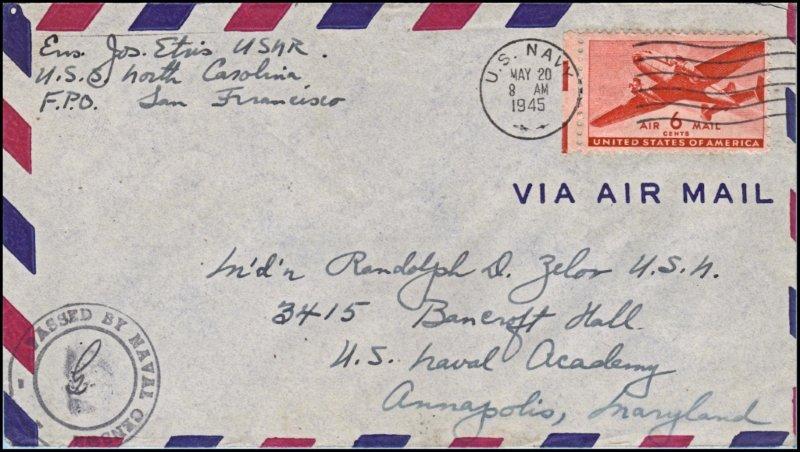 Ens. Jos. Etris USNR.
U.S.S North Carolina
F.P.O. San Francisco
U.S. NAVY
MAY 20
8 AM
1945
AIR 6 MAIL
CENTS
UNITED STATES OF AMERICA
VIA AIR MAIL
M'd'n Randolph D. Zelov U.S.N.
3415 Bancroft Hall
U.S. Naval Academy
Annapolis, Maryland
PASSED BY NAVAL CENS